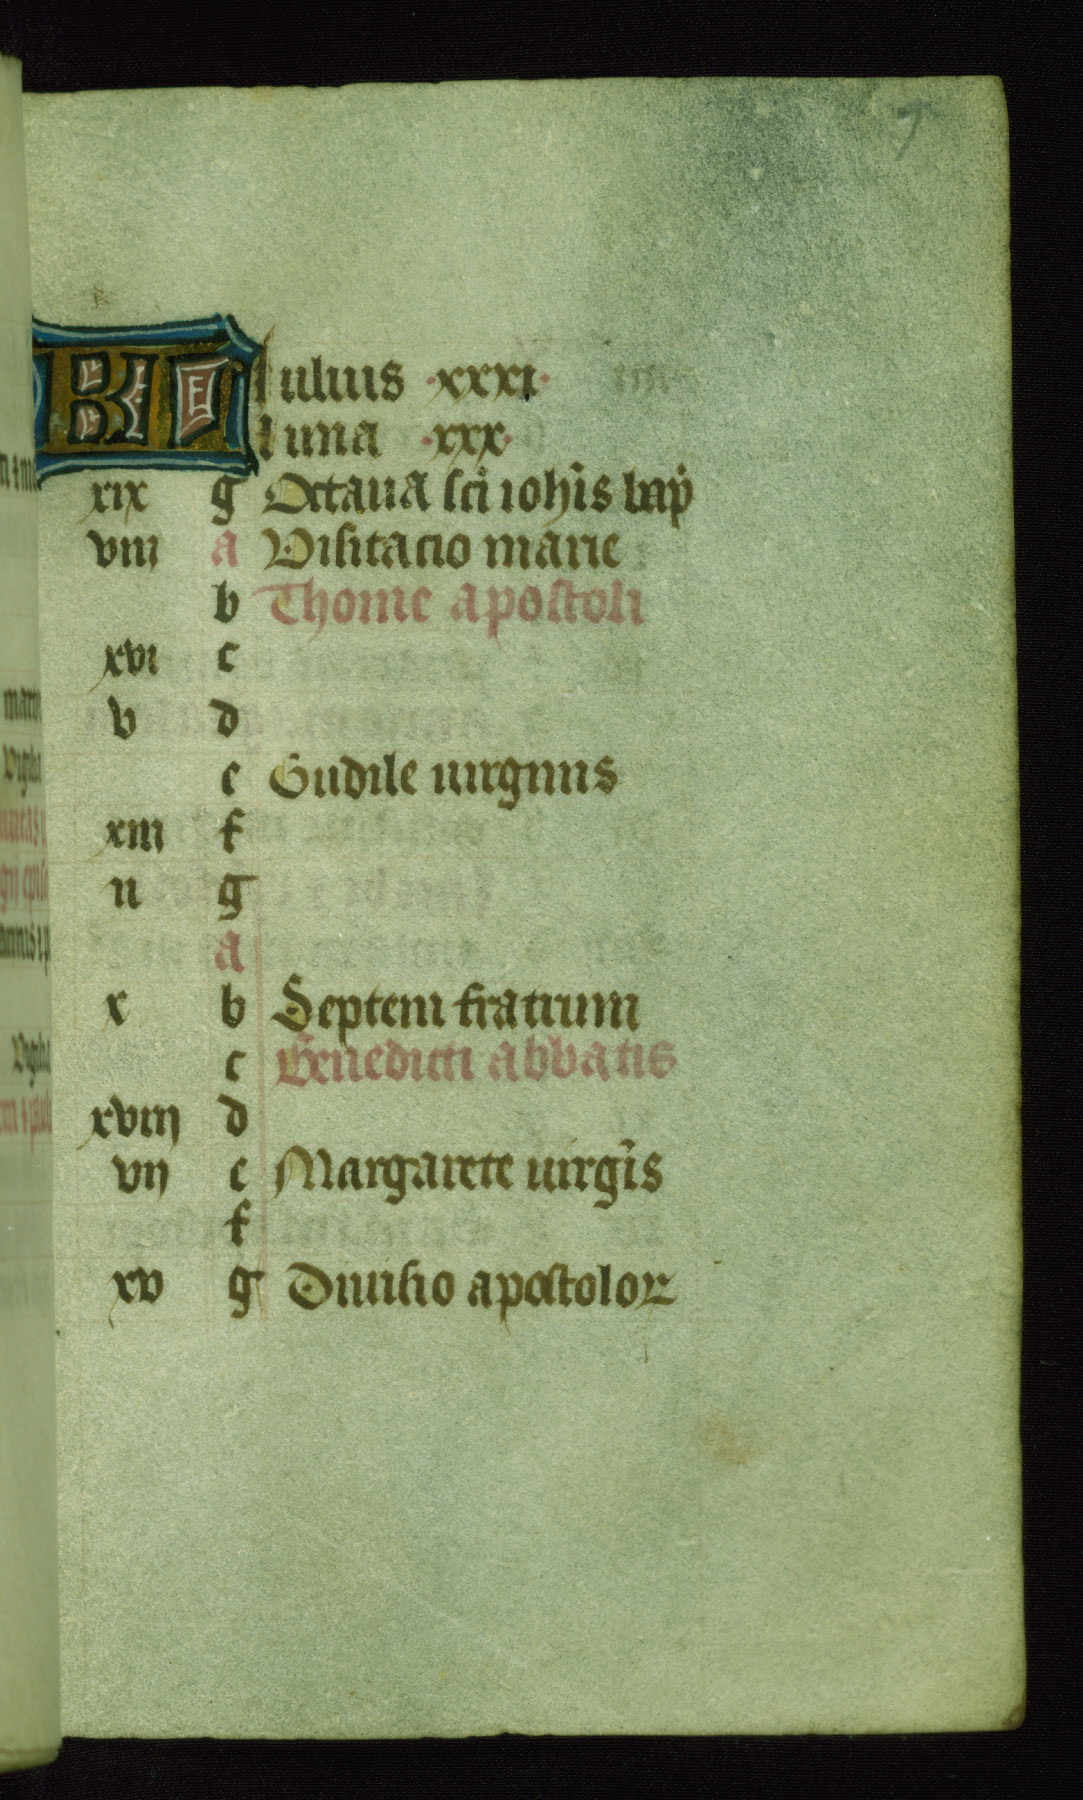 7
KL Iulius · xxxi ·
luna · xxx ·
xix g Octaua sci iohis bap
viii a Visitacio marie
b Thome apostoli
xvi c
v d
e Gudile uirginis
xiii f
ii g
a
x b Septem fratrum
c Benedicti abbatis
xviii d
vii e Margarete uirgis
f
xv g Diuisio apostoloꝝ